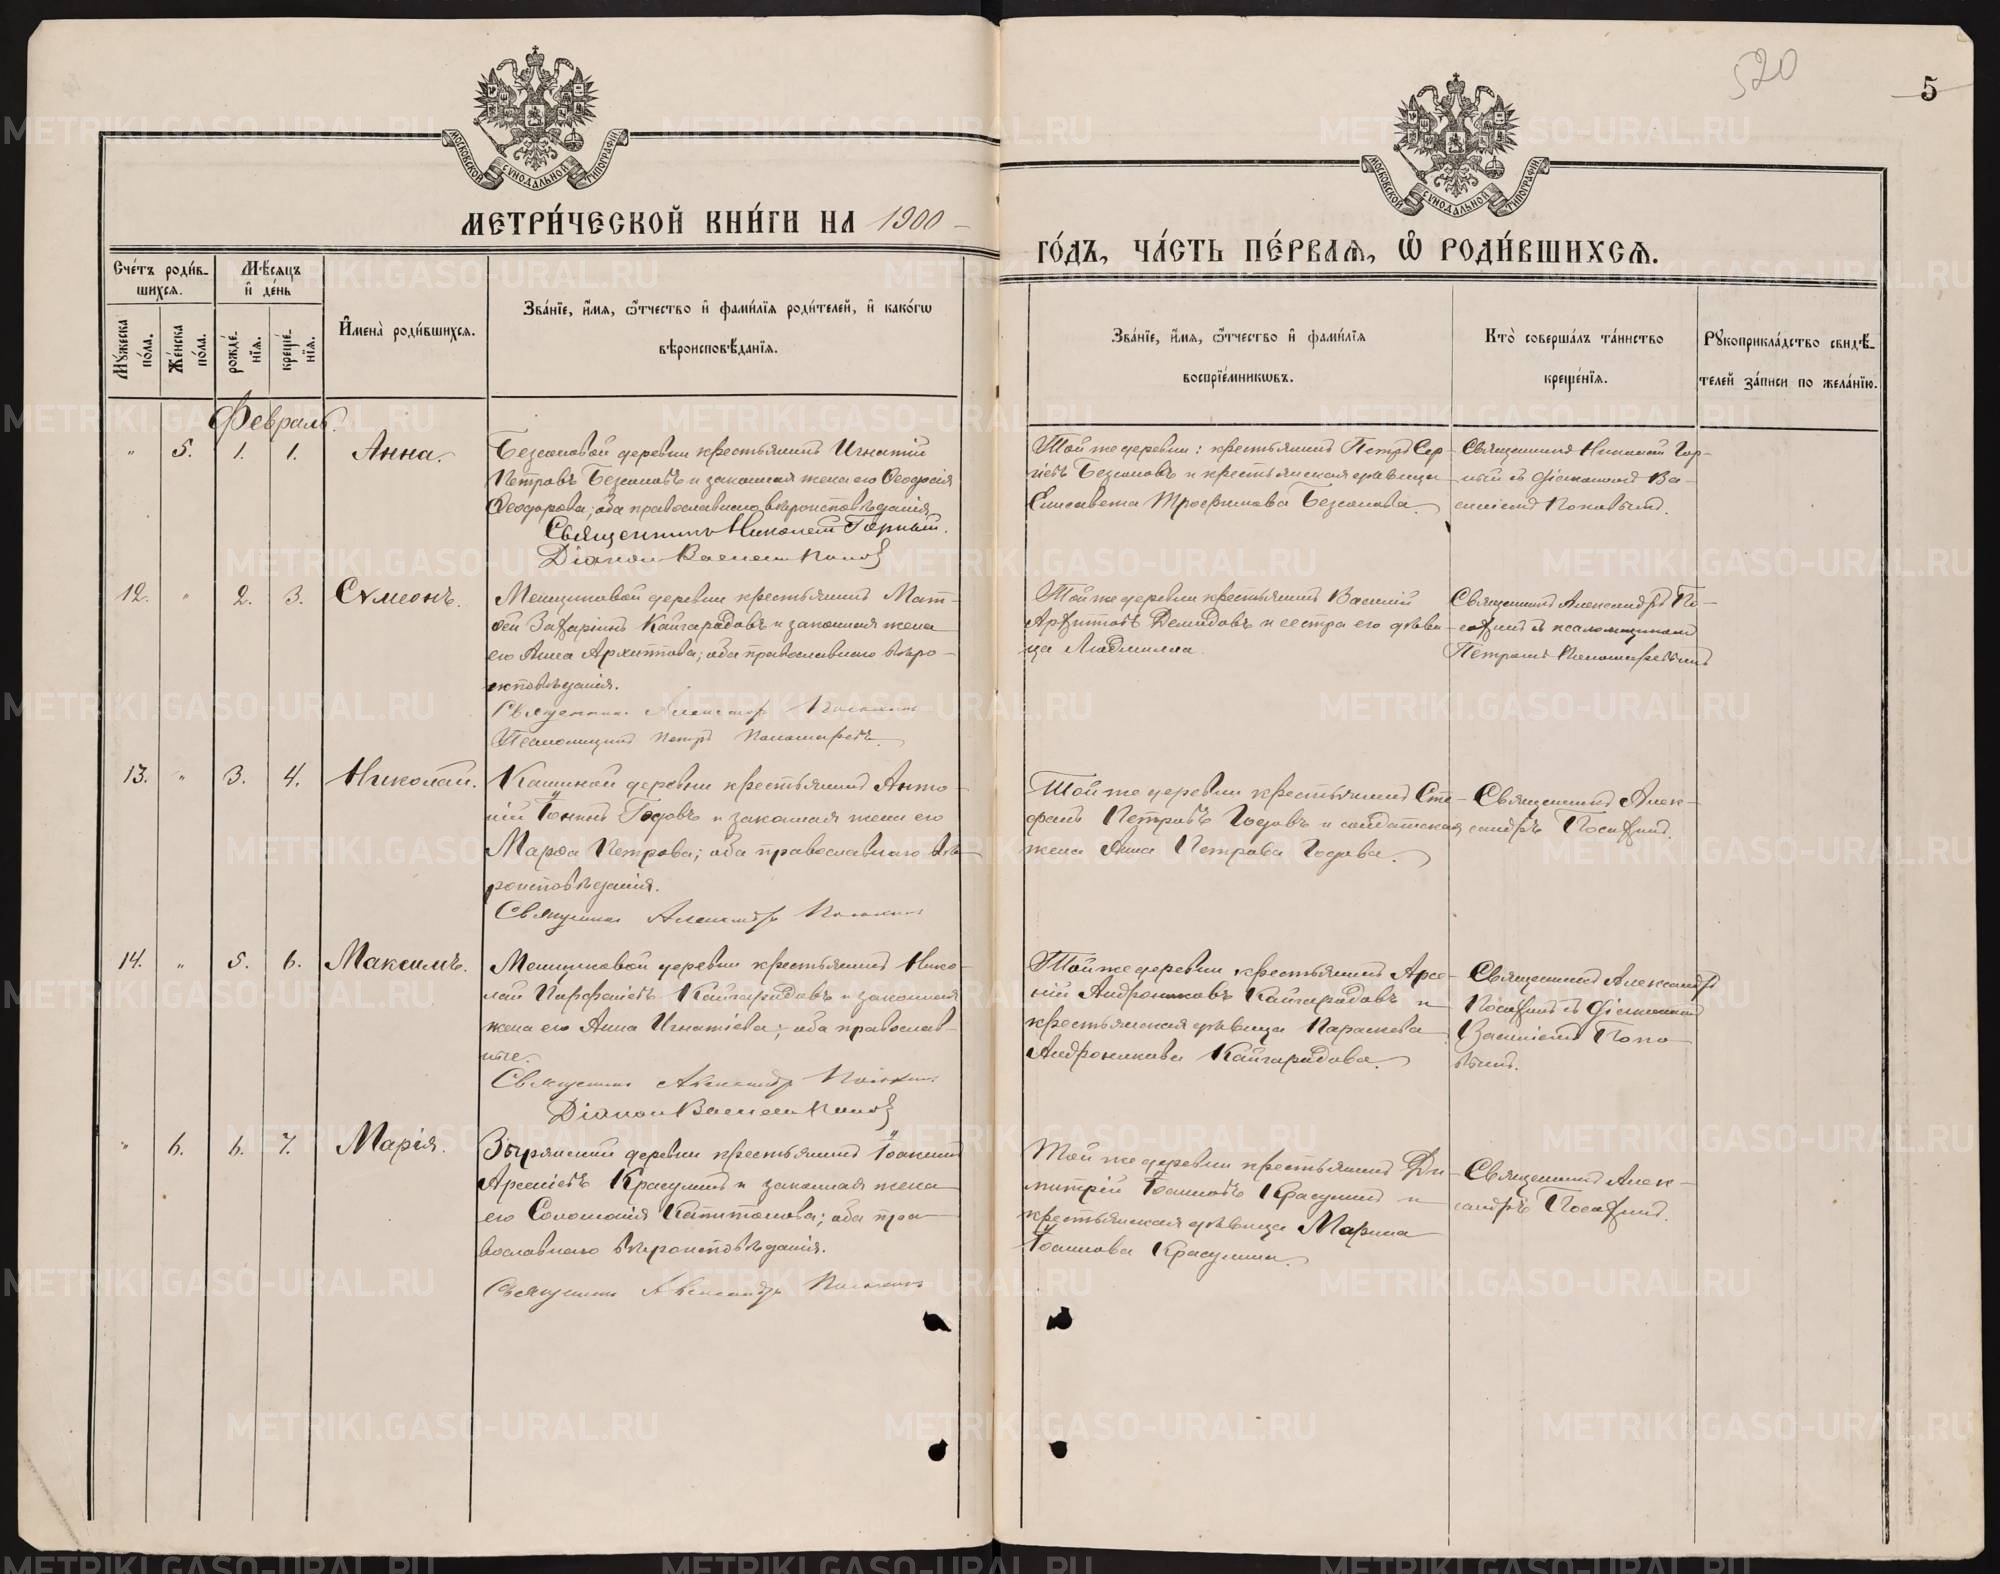 520
5
МОСКОВСКОЙ СУНОДАЛЬНОЙ ТИПОГРАФІИ
МОСКОВСКОЙ СУНОДАЛЬНОЙ ТИПОГРАФІИ
МЕТРИ́ЧЕСКОЙ КНИ́ГИ НА 1900
ГО́ДЪ, ЧА́СТЬ ПЕ́РВАѦ, Ѡ҆ РОДИ́ВШИХСѦ.
Сче́тъ роди́в-
шихсѧ.
Мѣ́сѧцъ
и҆ де́нь
Мꙋ́жеска
по́ла.
Же́нска
по́ла.
рожде́-
нїѧ.
креще́-
нїѧ.
И҆мена̀ роди́вшихсѧ.
Зва́нїе, и҆́мѧ, ѻ҆́тчество и҆ фами́лїѧ роди́телей, и҆ како́гѡ
вѣроисповѣ́данїѧ.
Зва́нїе, и҆́мѧ, ѻ҆́тчество и҆ фами́лїѧ
воспрїе́мникѡвъ.
Кто̀ соверша́лъ та́инство
креще́нїѧ.
Рꙋкоприкла́дство свидѣ́-
телей за́писи по жела́нїю.
Февраль.
" 5. 1. 1. Анна.
Безсоновой деревни крестьянинъ Игнатій
Петровъ Безсоновъ и законная жена его Ѳеодосія
Ѳеодорова; оба православнаго вѣроисповѣданія.
Священникъ Николай Горный.
Діакон Василій Попов
Той же деревни: крестьянинъ Петръ Сер-
гіевъ Безсоновъ и крестьянская дѣвица
Елисавета Трофимова Безсонова.
Священникъ Николай Гор-
ный съ діакономъ Ва-
силіемъ Поповымъ.
12. " 2. 3. Сѵмеонъ.
Менщиковой деревни крестьянинъ Мат-
ѳей Захаринъ Кайгародовъ и законная жена
его Анна Архиппова; оба православнаго вѣро-
исповѣданія.
Священникъ Александръ
Псаломщикъ Петръ Пономаревъ
Той же деревни крестьянинъ Василій
Архиповъ Демидовъ и сестра его дѣви-
ца Людмилла.
Священникъ Александръ По-
съ псаломщикомъ
Петромъ Пономаревымъ
13. " 3. 4. Николай.
Кашиной деревни крестьянинъ Анто-
ній Іонинъ Годовъ и законная жена его
Марѳа Петрова; оба православнаго вѣ-
роисповѣданія.
Священникъ Александръ
Той же деревни крестьянинъ Сте-
фанъ Петровъ Годовъ и солдатская
жена Анна Петрова Годова.
Священникъ Алек-
сандръ
14. " 5. 6. Максимъ.
Менщиковой деревни крестьянинъ Нико-
лай Парфеніевъ Кайгародовъ и законная
жена его Анна Игнатіева; оба православ-
ные.
Священникъ Александръ
Діакон Василій Попов
Той же деревни крестьянинъ Арсе-
ній Андрониковъ Кайгародовъ и
крестьянская дѣвица Параскева
Андроникова Кайгародова.
Священникъ Александръ
съ діакономъ
Василіемъ Попо-
вымъ.
" 6. 6. 7. Марія.
Зырянской деревни крестьянинъ Іоакимъ
Арсеніевъ Красулинъ и законная жена
его Соломанія Капитонова; оба пра-
вославнаго вѣроисповѣданія.
Священникъ Александръ
Той же деревни крестьянинъ Ди-
митрій Іоанновъ Красулинъ и
крестьянская дѣвица Марина
Іоаннова Красулина.
Священникъ Алек-
сандръ
METRIKI.GASO-URAL.RU